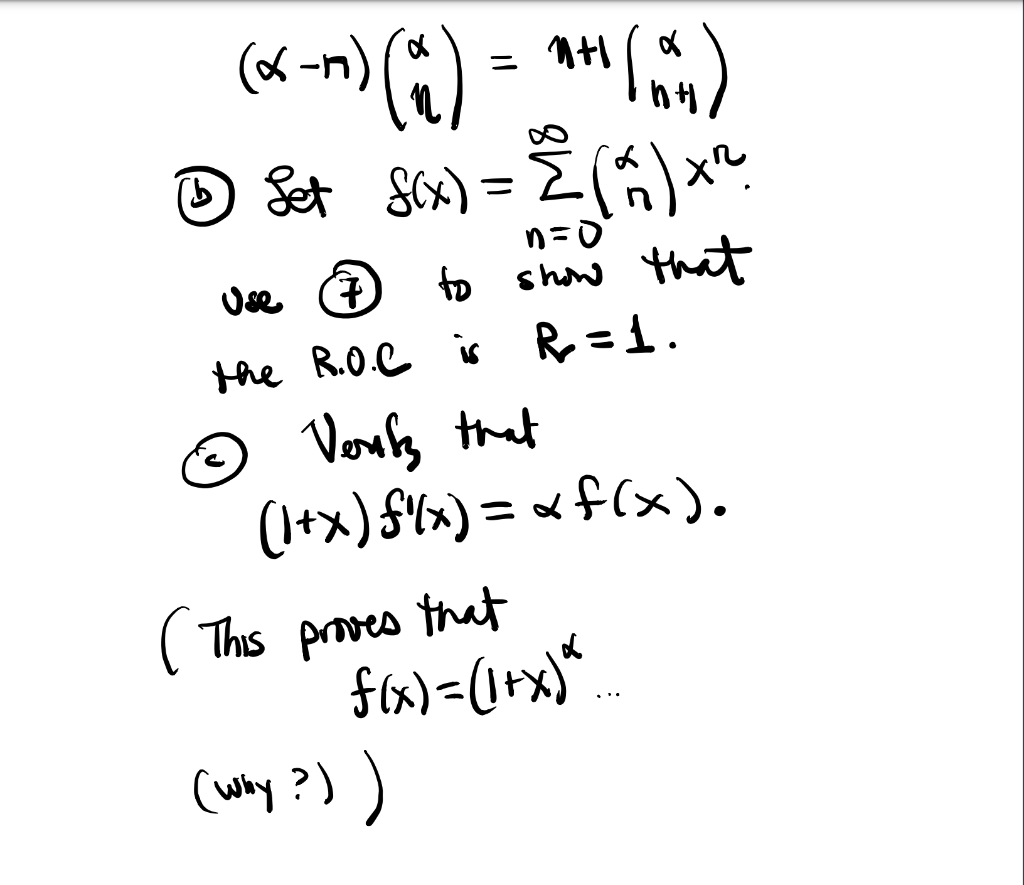 (α-n)(α n) = n+1(α n+1)
ⓑ Set f(x) = ∞∑n=0 (α n) xⁿ.
use ⑦ to show that
the R.O.C is R=1.
ⓒ Verify that
(1+x)f'(x) = αf(x).
(This proves that
f(x)=(1+x)^α ...
(why?))